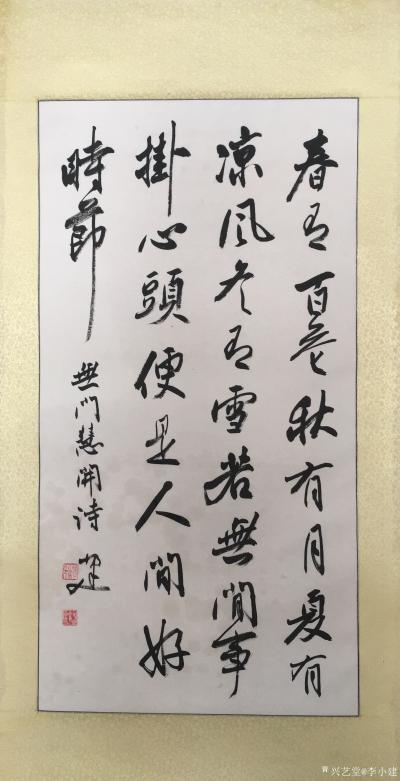 春有百花秋有月夏有
凉風冬有雪若無閒事
掛心頭便是人間好
時節
無門慧開诗 建
兴艺堂@李小建